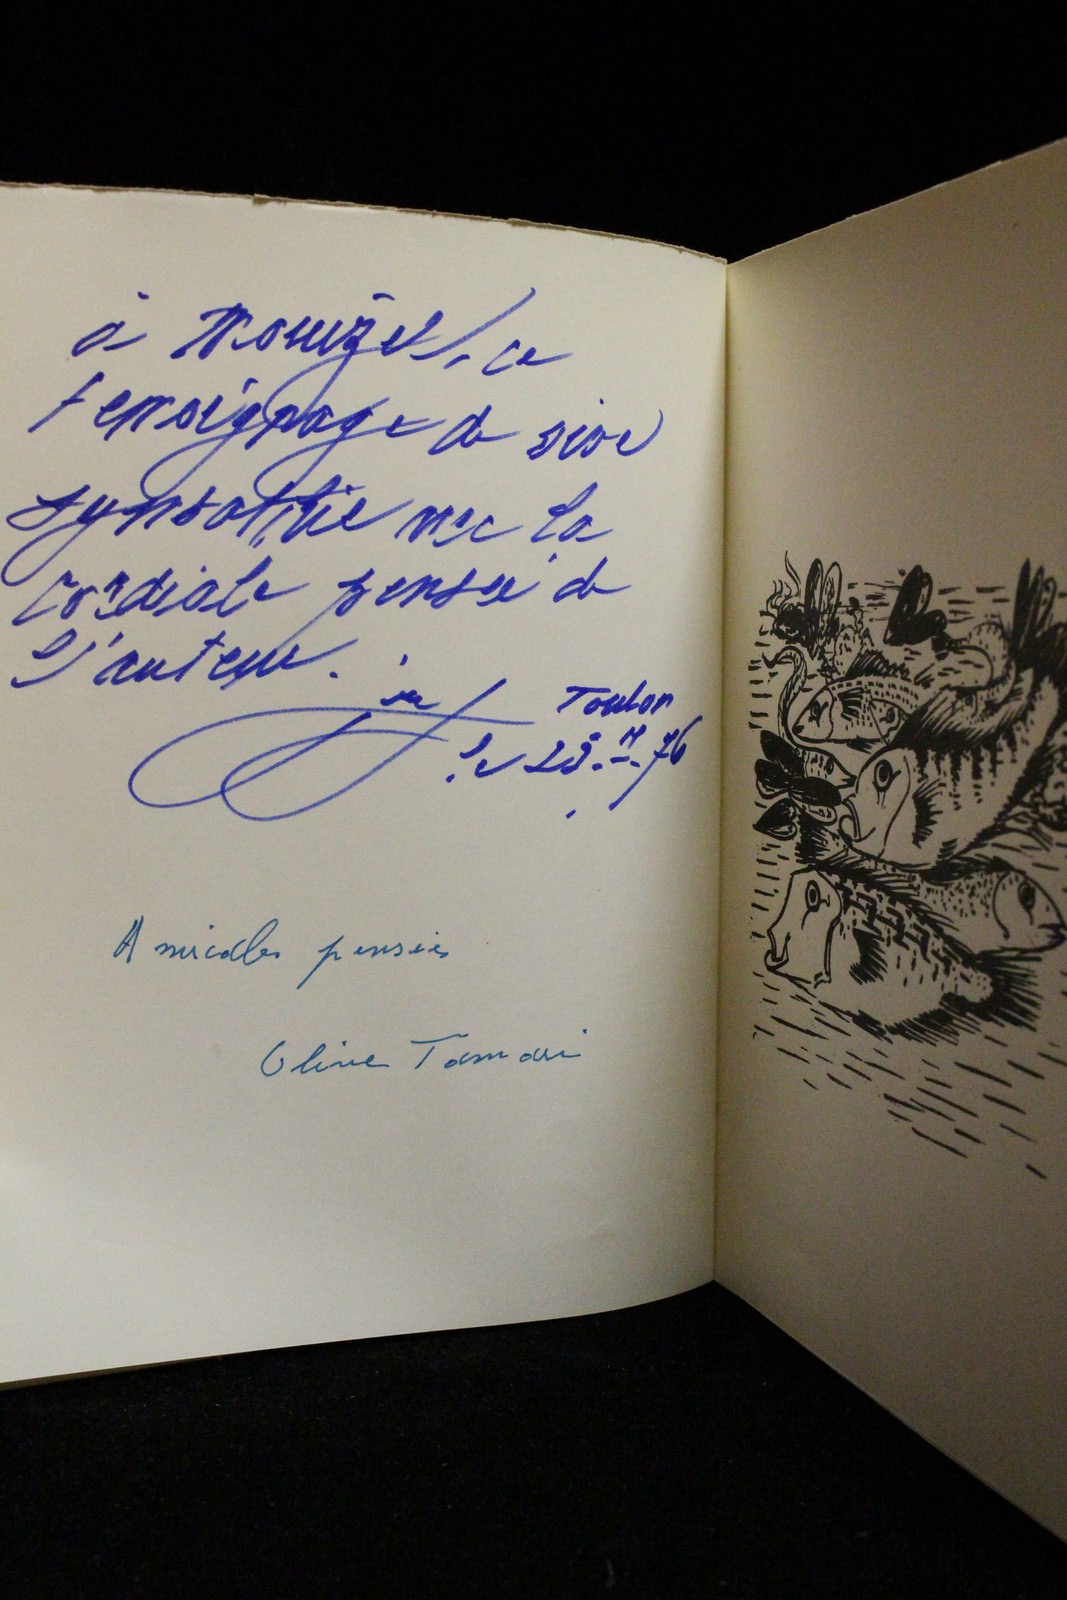 à ce
temoignage de vive
sympathie avec la
cordiale pensée de
l'auteur.
Toulon
le 76
Amicales pensées
Olive Tamari